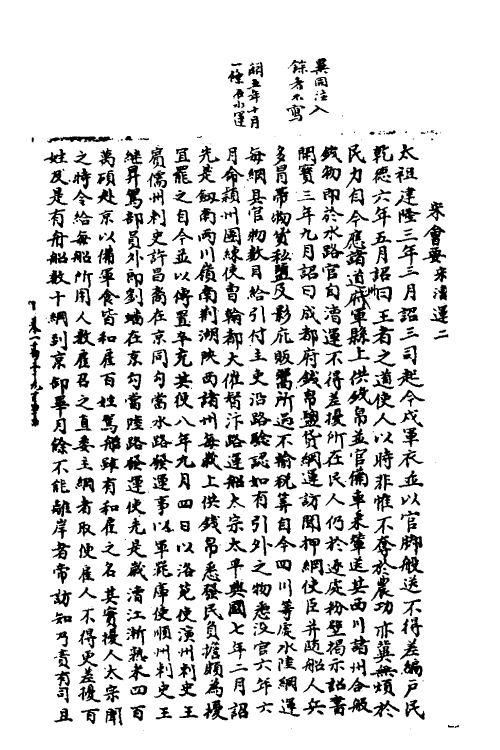 異同注入
餘者不寫
開五年十月
一條
宋會要宋漕運二
太祖建隆三年三月詔三司起今戍軍衣並以官脚般送不得差編戶民
乾德六年五月詔曰王者之道使人以時非惟不奪於農功亦冀無煩於
民力自今應諸道州府軍縣上供錢帛並官備車乘輦送其西川諸州合般
錢物即於水路官自漕運不得差擾所在民人仍於逐處粉壁揭示詔書
開寶三年九月詔曰成都府錢帛鹽貨綱運訪聞押綱使臣并隨船人兵
多冒帶物貨私鹽及影庇販鬻所過不輸稅筭自今四川等處水陸綱運
每綱具官物數目給引付主吏沿路驗認如有引外之物悉沒官六年六
月命潁州團練使曹翰都大催督汴路運船太宗太平興國七年二月詔
先是劍南兩川嶺南荊湖陝西諸州每歲上供錢帛悉發民負擔頗為擾
宜罷之自今並以傳置卒充其役八年九月四日以洛苑使演州刺史王
賓儒州刺史許昌裔在京同勾當水路發運事以軍毘庫使順州刺史王
繼昇駕部員外郎劉蟠在京勾當陸路發運使先是歲漕江浙熟米四百
萬碩赴京以備軍食皆和雇百姓駕船雖有和雇之名其實擾人太宗聞
之時令給每船所用人數雇召之直委主綱者取便雇人不得更差擾百
姓及是有舟船數十綱到京卸畢月餘不能離岸者常訪知乃責有司且